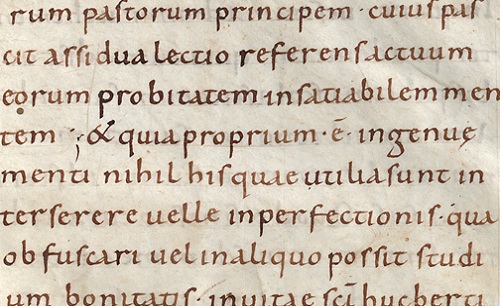 rum pastorum principem · cuius pas
cit assidua lectio referens actuum
eorum probitatem insatiabilem men
tem ; & quia proprium · ē · ingenuę
menti nihil his quae utilia sunt in
terserere uelle inperfectionis · qua
obfuscari uel in aliquo possit studi
um bonitatis · in uitae sci hucberti